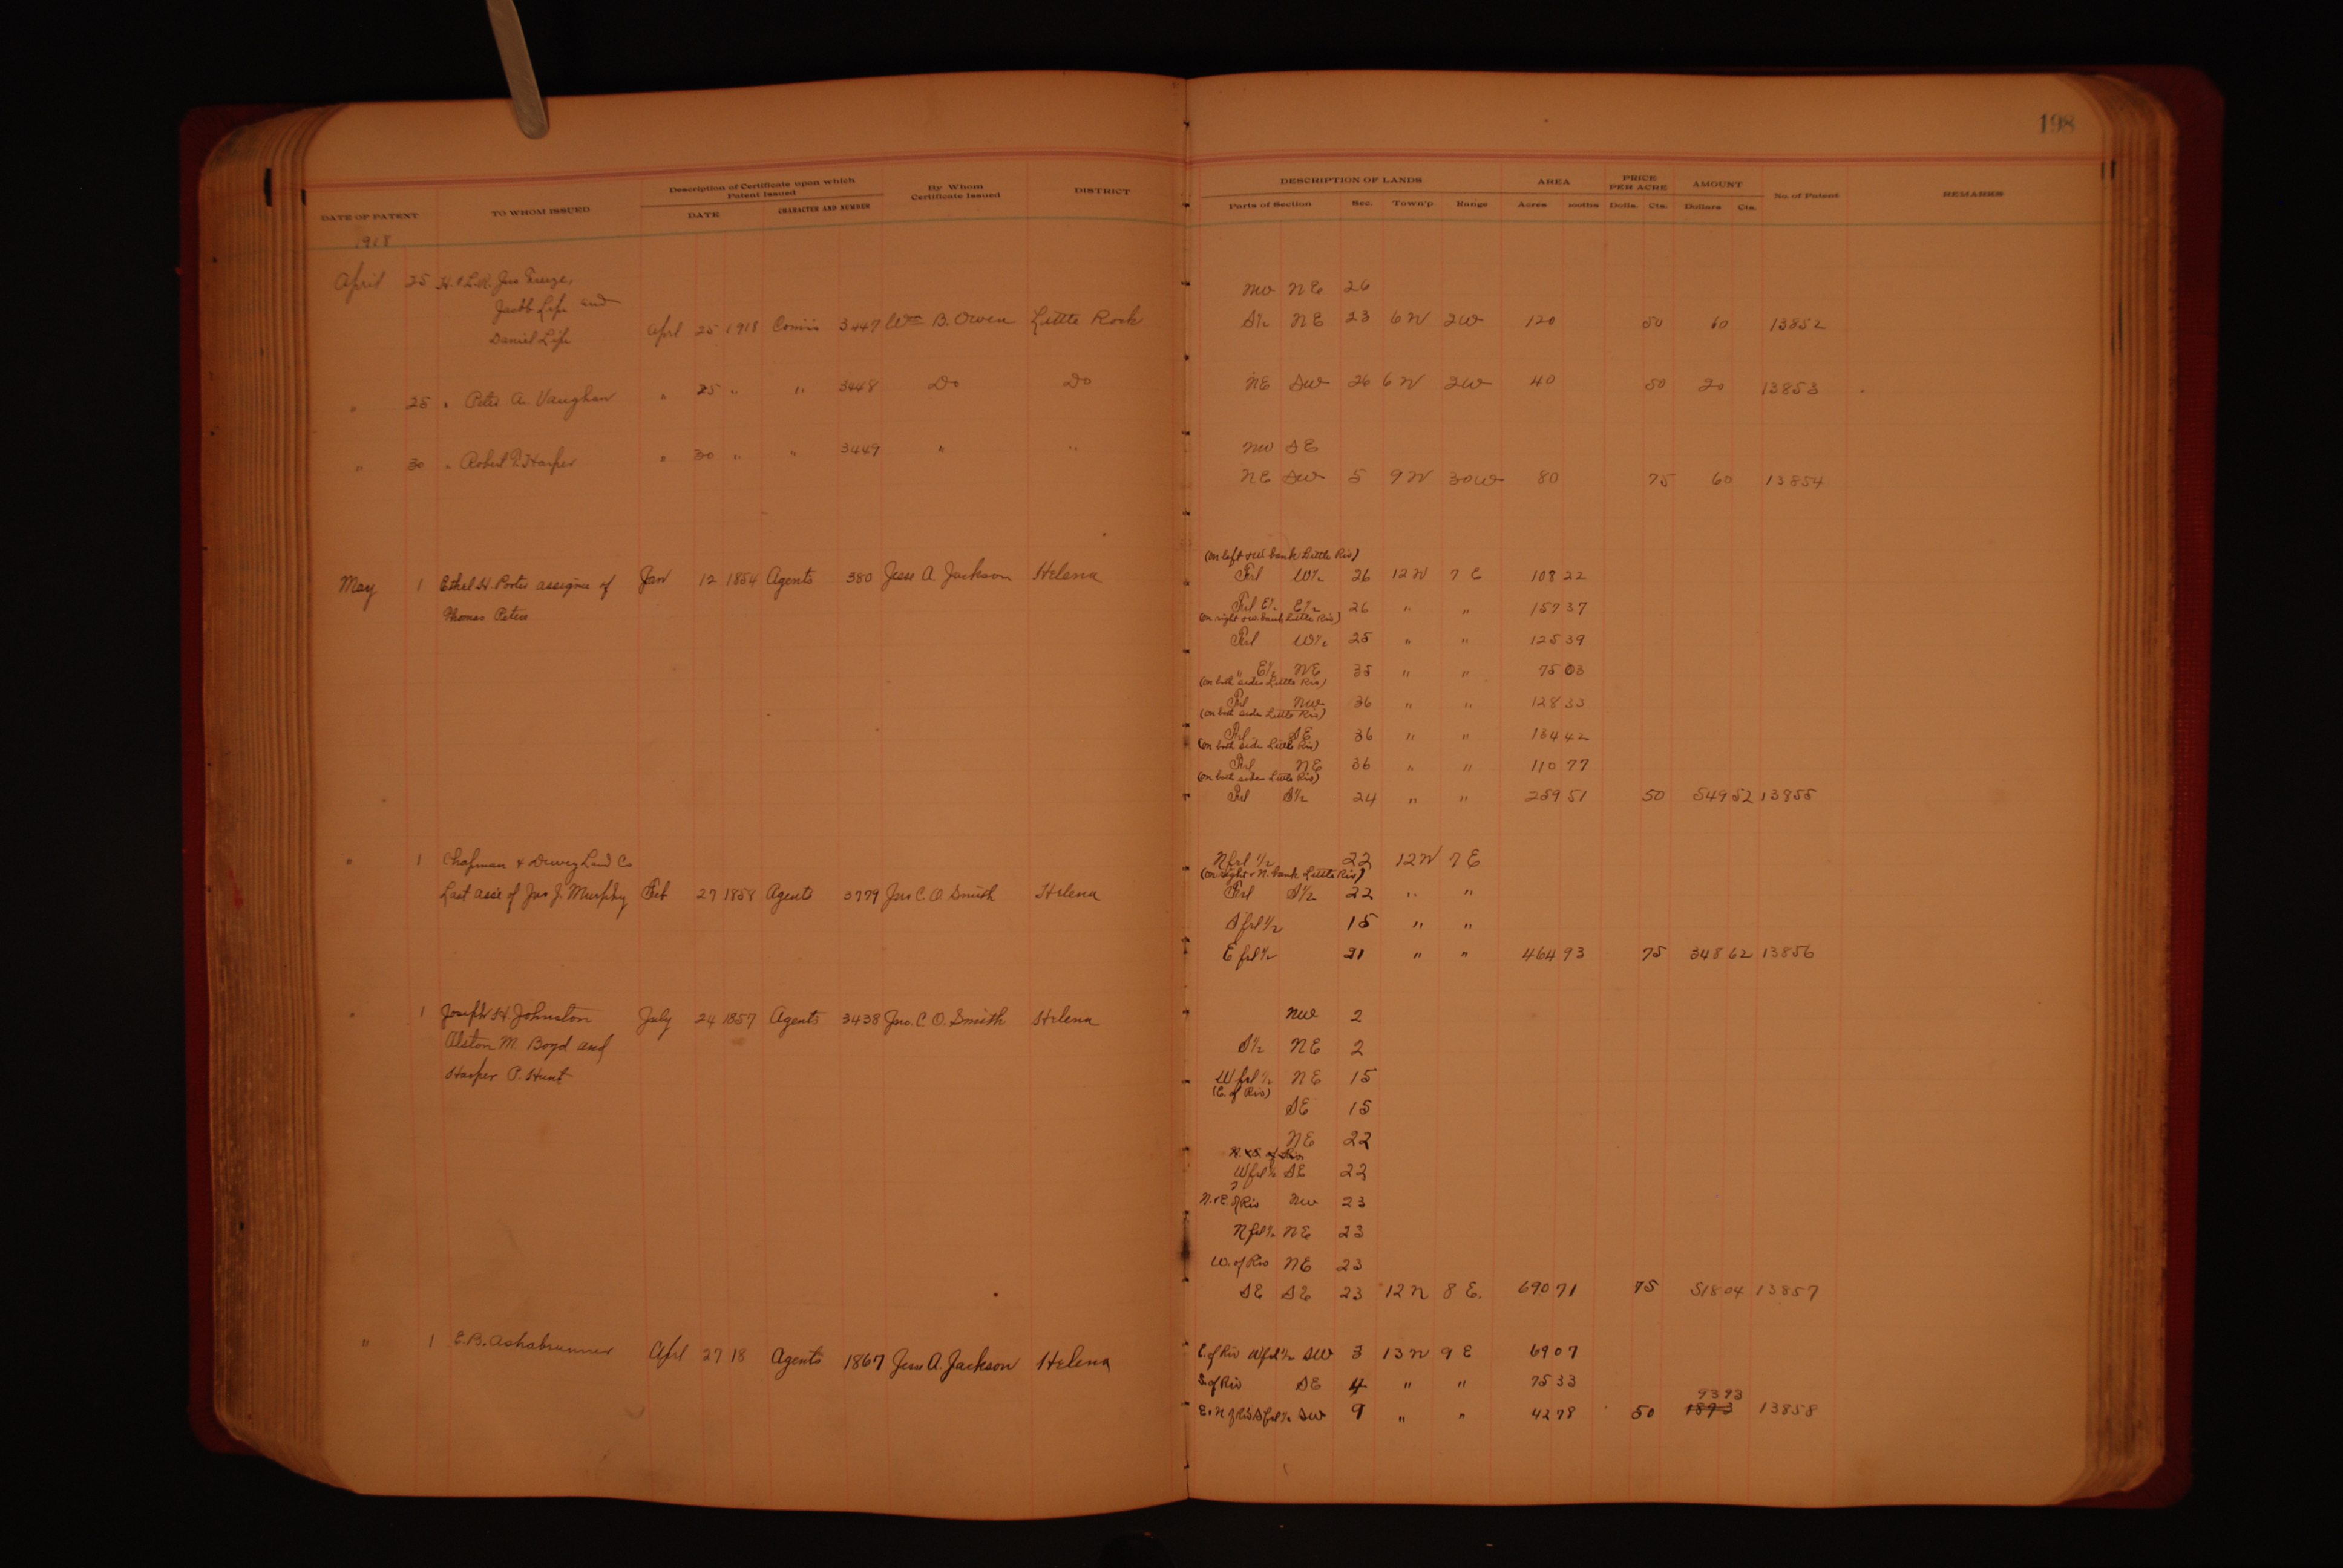 198
DATE OF PATENT TO WHOM ISSUED Description of Certificate upon which Patent Issued DATE CHARACTER AND NUMBER By Whom Certificate Issued DISTRICT DESCRIPTION OF LANDS Parts of Section Sec. Town'p Range AREA Acres PRICE PER ACRE Dolls. Cts. AMOUNT Dollars Cts. No. of Patent REMARKS
1918
April 25 Jno
Jacob Lipe and NW NE 26
Daniel Lipe Aprl 25 1918 Comis 3447 Wm B. Owen Little Rock S½ NE 23 6N 2W 120 50 60 13852
" 25 " Peter A. Vaughan " 25 " " 3448 Do Do NE SW 26 6N 2W 40 50 20 13853
" 30 " Robert P. Harper " 30 " " 3449 " " NW SE
NE SW 5 9N 30W 80 75 60 13854
(on left & W. bank Little Riv)
May 1 Ethel H. Porter assignee of Jan 12 1854 Agents 380 Jesse A. Jackson Helena Frl W½ 26 12N 7E 108 22
Thomas Peters Frl E½ E½ 26 " " 157 37
(on right & W. bank Little Riv)
Frl W½ 25 " " 125 39
" E½ NE 35 " " 75 03
(on both sides Little Riv)
Frl NW 36 " " 128 33
(on both sides Little Riv)
Frl SE 36 " " 134 42
(on both sides Little Riv)
Frl NE 36 " " 110 77
(on both sides Little Riv)
Frl S½ 24 " " 259 51 50 549 52 13855
" 1 Chapman & Dewey Land Co N frl ½ 22 12N 7E
(on right & N. bank Little Riv)
Last assee of Jno J. Murphy Feb 27 1858 Agents 3779 Jno C. O. Smith Helena Frl S½ 22 " "
S frl ½ 15 " "
E frl ½ 21 " " 464 93 75 348 62 13856
" 1 Joseph H. Johnston July 24 1857 Agents 3438 Jno. C O. Smith Helena NW 2
Alston M. Boyd and S½ NE 2
Harper P. Hunt W frl ½ NE 15
(E. of Riv)
SE 15
NE 22
W frl ½ SE 22
N. & E. of Riv NW 23
N frl ½ NE 23
W. of Riv NE 23
SE SE 23 12N 8E. 690 71 75 518 04 13857
" 1 E. B. Ashabrunner Aprl 27 18 Agents 1867 Jesse A. Jackson Helena E. of Riv W frl ½ SW 3 13N 9E 69 07
S. of Riv SE 4 " " 75 33
93 93
E. & N of Riv S frl ½ SW 9 " " 42 78 50 1893 13858